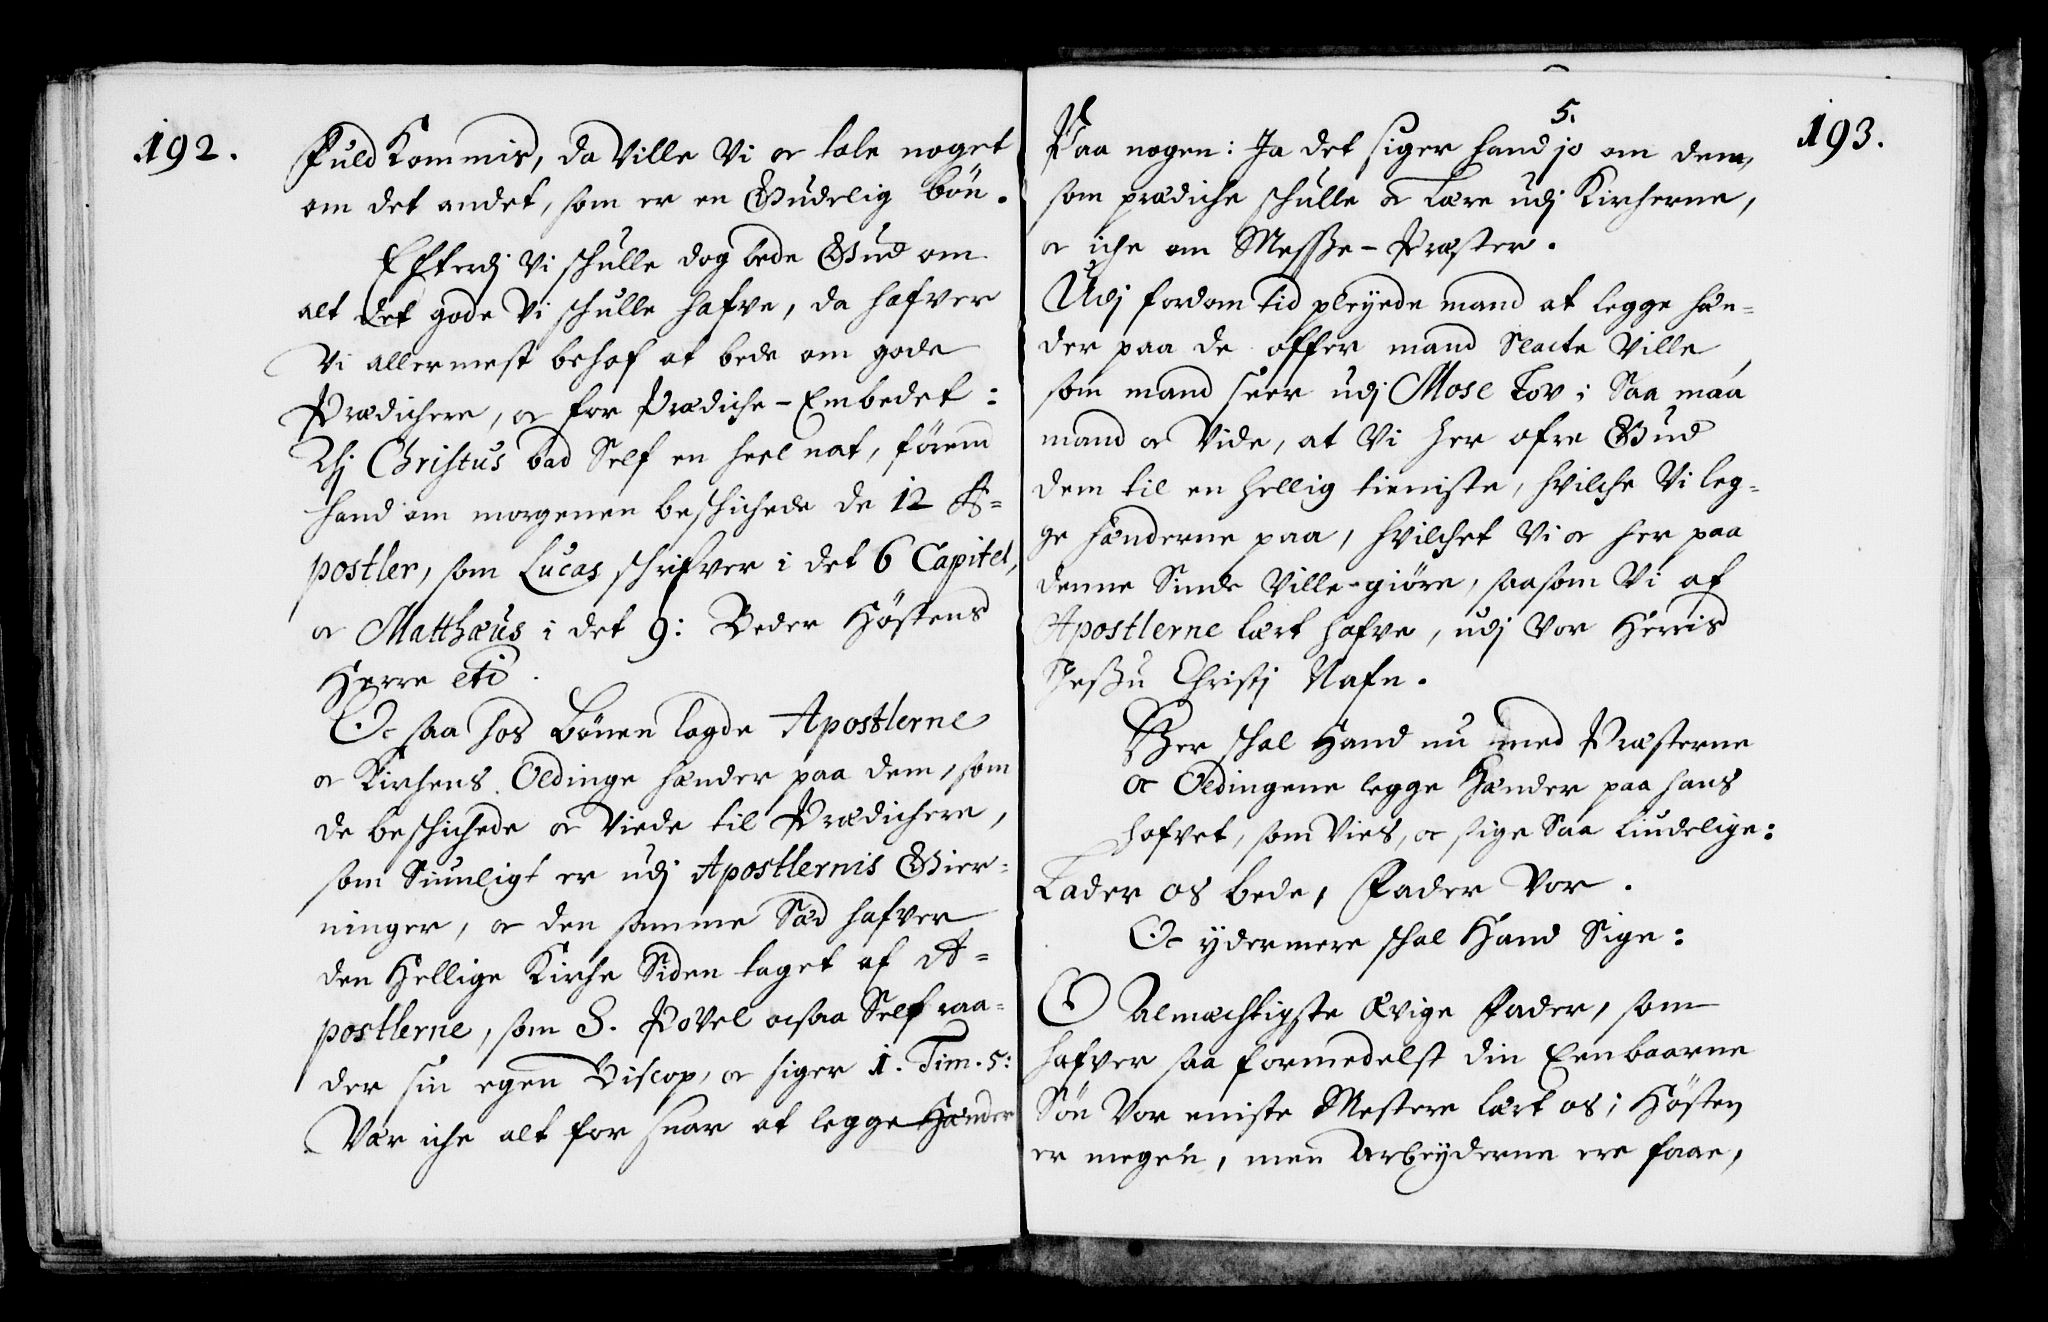 192.
Fuld Kommis, da Ville Vi oc tale noget
om det andet, som er en Gudelig bön.
Efterdj Vi schulle dog bede Gud om
alt det gode Vi schulle hafve, da hafver
Vi allermest behof at bede om gode
Prædichere, oc for Prædiche-Embedet:
Thj Christus bad Self en heel nat, förend
hand om morgenen beschichede de 12 A-
postler, som Lucas schrifver i det 6 Capitel,
oc Matthæus i det 9: Beder Höstens
Herre etc.
Oc saa hos Bönen lagde Apostlerne
oc Kirchens Oldinge hænder paa dem, som
de beschichede oc Viede til Prædichere,
som Siunligt er udj Apostlernis Gier-
ninger, oc den samme Sæd hafver
den Hellige Kirche Siden taget af A-
postlerne, som S. Povel ocsaa Self raa-
der sin egen Biscop, oc siger 1. Tim. 5:
Vær iche alt for snar at legge Hænder
193.
5.
Paa nogen: Ja det siger hand jo om dem,
som prædiche schulle oc Lære udj Kircherne,
oc iche om Messe-Præster.
Udj fordom tid pleyede mand at legge hæn-
der paa de offer mand Slacte Ville,
som mand seer udj Mose Lov; Saa maa
mand oc Vide, at Vi her ofre Gud
dem til en hellig tieniste, hvilche Vi leg-
ge hænderne paa, hvilchet Vi oc her paa
denne Sinde Ville giöre, saasom Vi af
Apostlerne lært hafve, udj Vor Herris
Jessu Christj Nafn.
Her schal Hand nu med Præsterne
oc Oldingene legge Hænder paa hans
hofvet, som Vies, oc sige Saa Liudelige:
Lader os bede, Fader Vor.
Oc ydermere schal Hand Sige:
O Almechtigste Ævige Fader, som
hafver saa formedelst din Eenbaarne
Sön Vor eniste Mestere lært os; Hösten
er megen, men Arbeyderne ere faae,